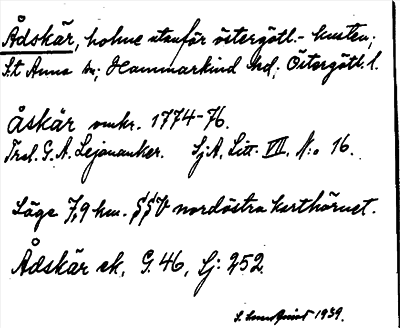 Ådskär, holme utanför östergötl.- kusten;
S:t Anna sn; Hammarkind hd; Östergötl. l.
Åskär omkr. 1774-76.
Trsl. G. A. Lejonanker. Sj.A. Litt. VII. N:o 16.
Läge 7,9 km. SSV nordöstra karthörnet.
Ådskär ek. G. 46, Lj: 252
1939.